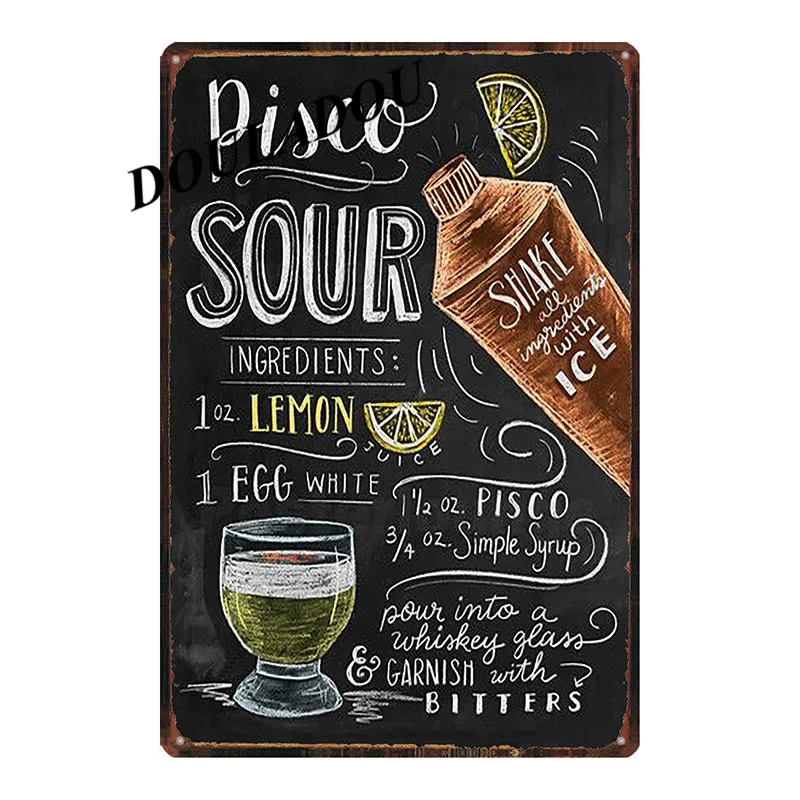 Pisco
DOULADOU
SOUR
INGREDIENTS:
1 oz. LEMON
JUICE
1 EGG WHITE
1 1/2 oz. PISCO
3/4 oz. Simple Syrup
SHAKE
all
ingredients
with
ICE
pour into a
whiskey glass
& GARNISH with
BITTERS